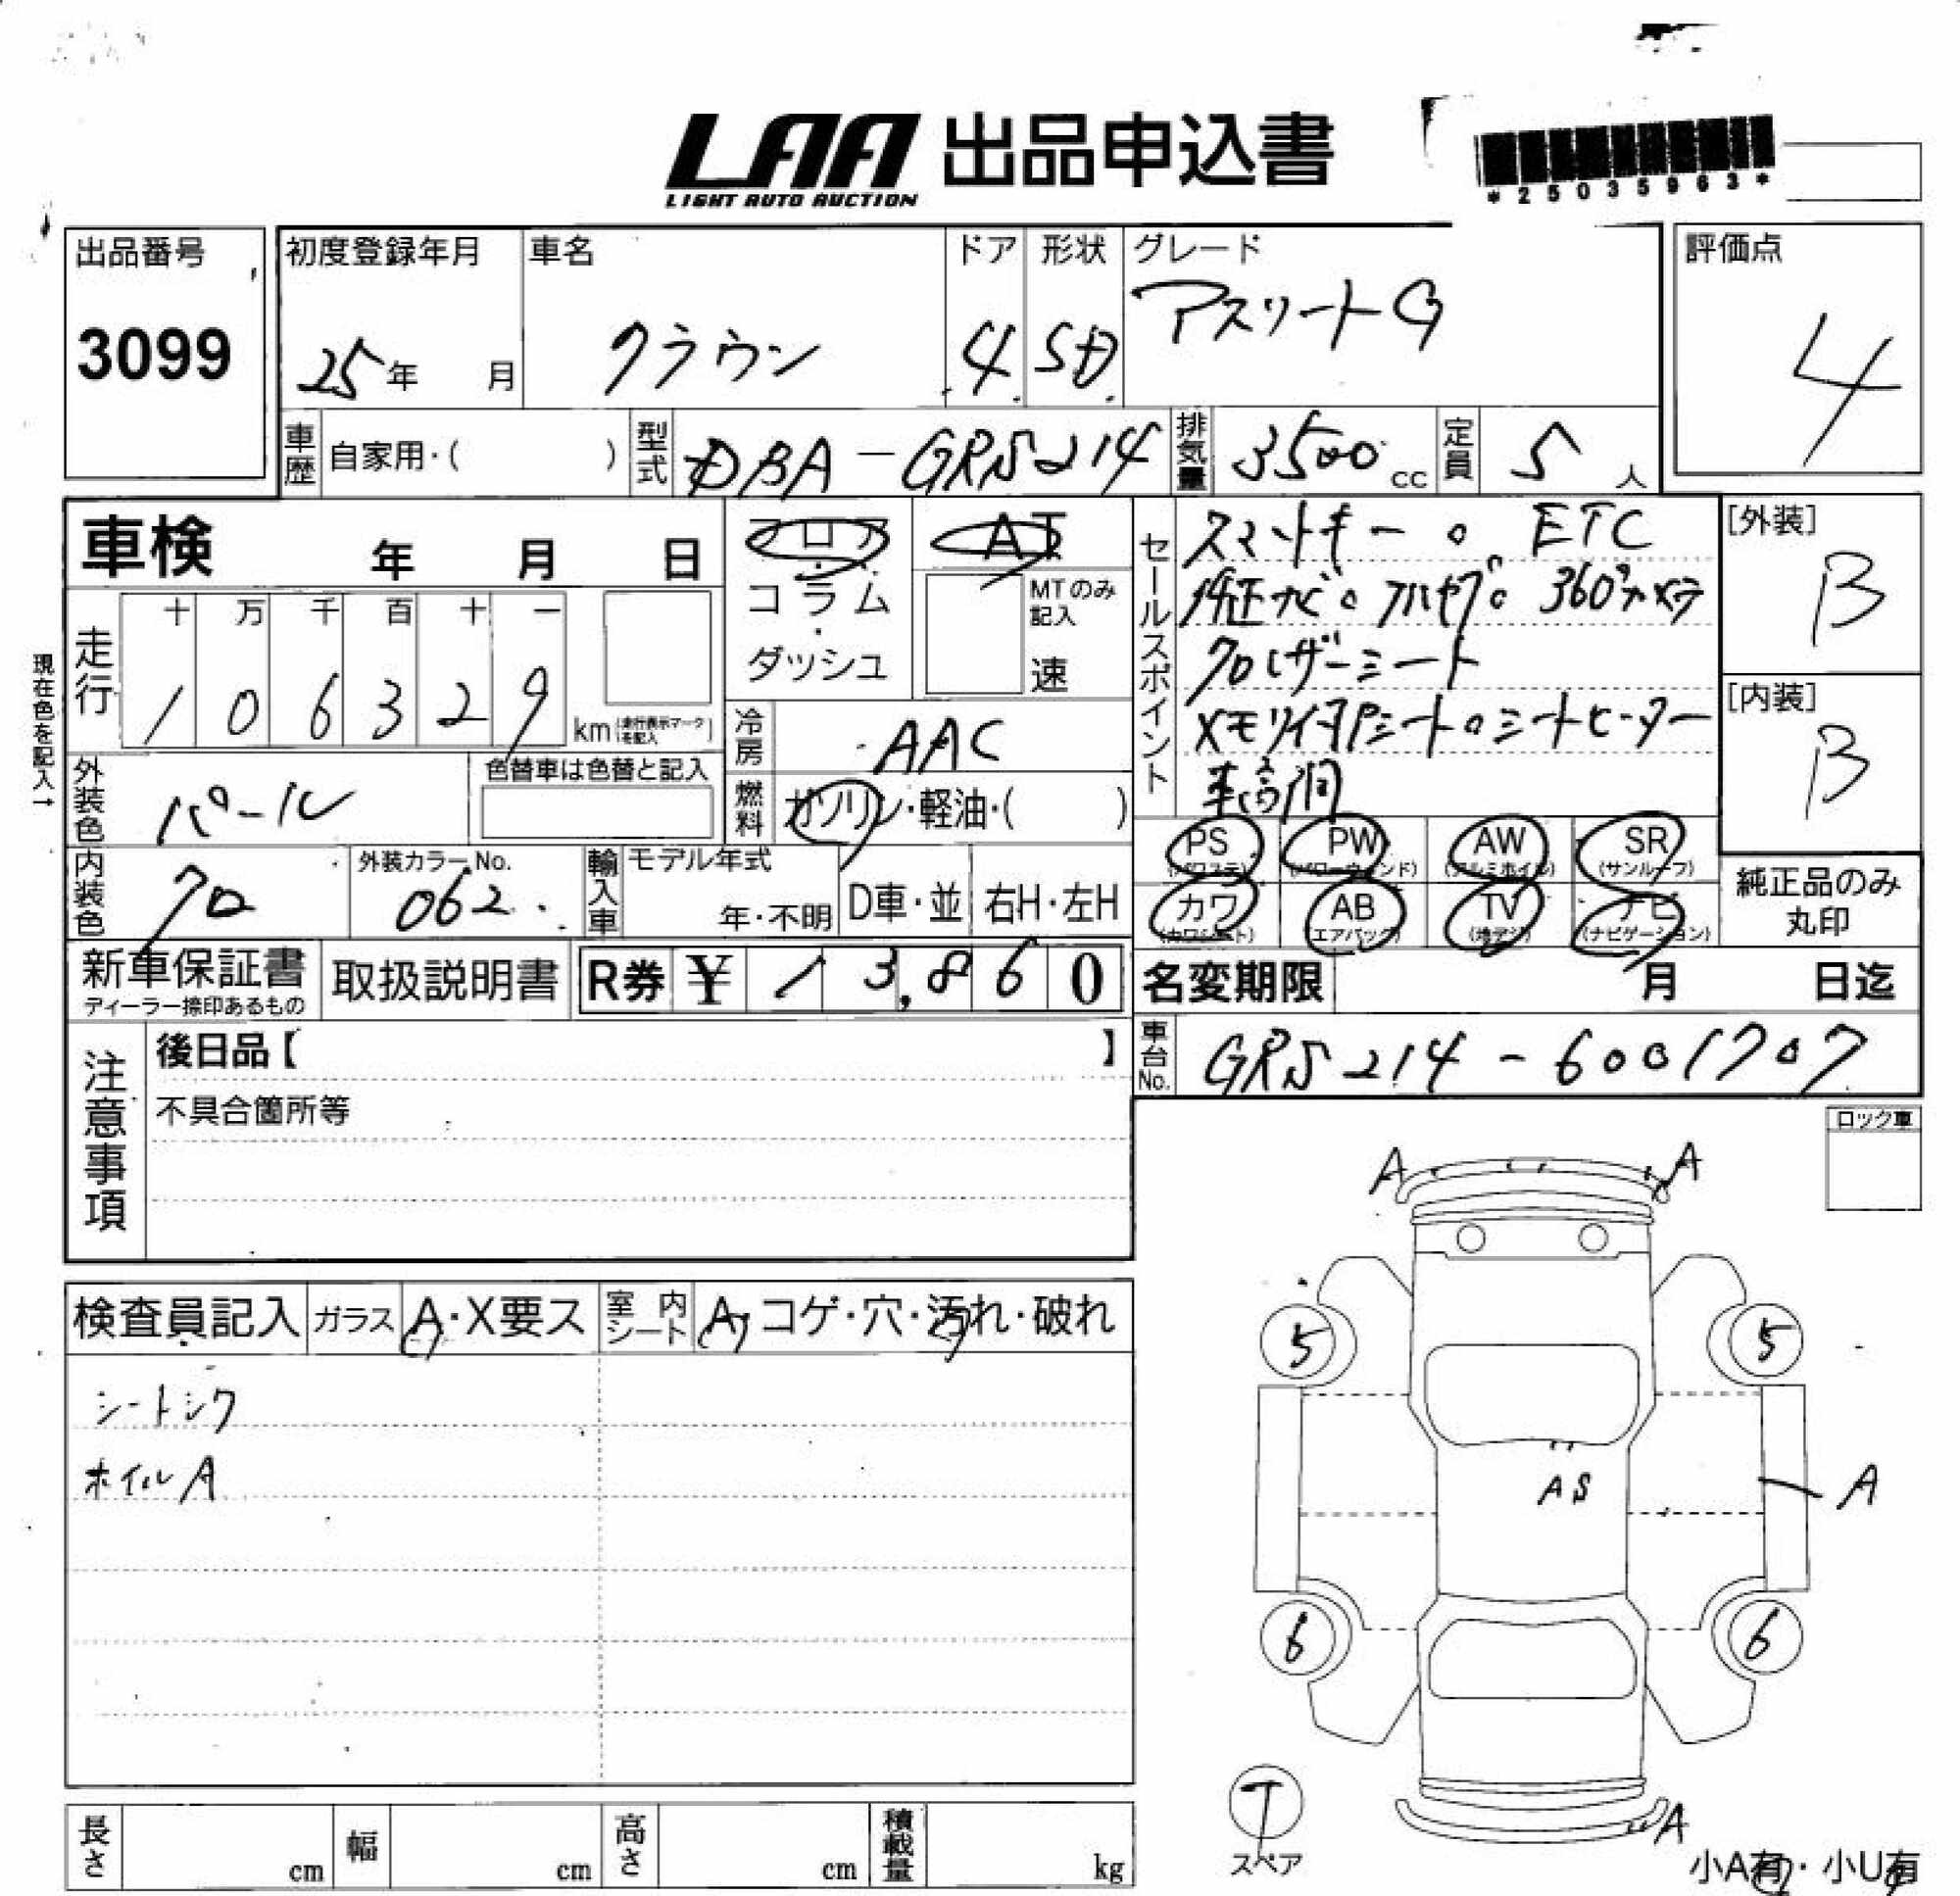 LAA 出品申込書
LIGHT AUTO AUCTION
*25035963*
出品番号
3099
初度登録年月
25年 月
車名
クラウン
ドア
4
形状
SD
グレード
アスリートG
評価点
4
車歴 自家用・( )
型式 DBA-GRS214
排気量 3500cc
定員 5人
車検 年 月 日
フロア・コラム・ダッシュ
AT
MTのみ記入
速
現在色を記入→
走行
十 万 千 百 十 一
1 0 6 3 2 9 km (走行表示マークを記入)
冷房 AAC
外装色 パール
色替車は色替と記入
燃料 ガソリン・軽油・( )
内装色 クロ
外装カラーNo.
062
輸入車
モデル年式
年・不明
D車・並 右H・左H
セールスポイント
スマートキー。ETC
純正ナビ。フルセグ。360°カメラ
クロレザーシート
メモリ付Pシート。シートヒーター
車高調
[外装]
B
[内装]
B
PS (パワステ) PW (パワーウィンド) AW (アルミホイル) SR (サンルーフ)
カワ (カワシート) AB (エアバッグ) TV (地デジ) ナビ (ナビゲーション)
純正品のみ丸印
新車保証書
ディーラー捺印あるもの
取扱説明書
R券 ¥ 13,860
名変期限 月 日迄
車台No. GRS214-6001707
注意事項
後日品【 】
不具合箇所等
ロック車
検査員記入 ガラス A・X要ス 室内シート A・コゲ・穴・汚れ・破れ
シートシワ
ホイルA
A A
5 5
AS
A
6 6
T
スペア
A
小A有・小U有
長さ cm 幅 cm 高さ cm 積載量 kg